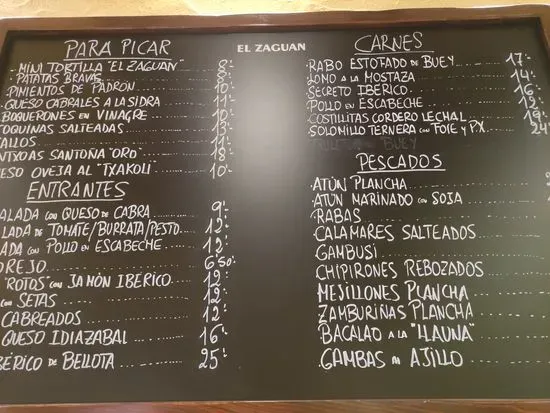 EL ZAGUAN
PARA PICAR
MINI TORTILLA "EL ZAGUAN" 8'-
PATATAS BRAVAS 8'-
PIMIENTOS DE PADRÓN 10'-
QUESO CABRALES A LA SIDRA 11'-
BOQUERONES EN VINAGRE 10'-
OQUINAS SALTEADAS 13'-
ALLOS 11'-
NTXOAS SANTOÑA "ORO" 18'-
ESO OVEJA AL "TXAKOLI" 10'-
ENTRANTES
ALADA CON QUESO DE CABRA 9'-
LADA DE TOMATE/BURRATA/PESTO 12'-
ADA CON POLLO EN ESCABECHE 12'-
OREJO 6'50
ROTOS CON JAMÓN IBÉRICO 12'-
CON SETAS 12'-
CABREADOS 12'-
QUESO IDIAZABAL 16'-
BÉRICO DE BELLOTA 25'-
CARNES
RABO ESTOFADO DE BUEY 17'-
LOMO A LA MOSTAZA 14'-
SECRETO IBÉRICO 16'-
POLLO EN ESCABECHE 12'-
COSTILLITAS CORDERO LECHAL 19'-
SOLOMILLO TERNERA CON FOIE Y PX 24
BUEY
PESCADOS
ATÚN PLANCHA
ATUN MARINADO CON SOJA
RABAS
CALAMARES SALTEADOS
GAMBUSI
CHIPIRONES REBOZADOS
MEJILLONES PLANCHA
ZAMBURIÑAS PLANCHA
BACALAO A LA "LLAUNA"
GAMBAS AL AJILLO